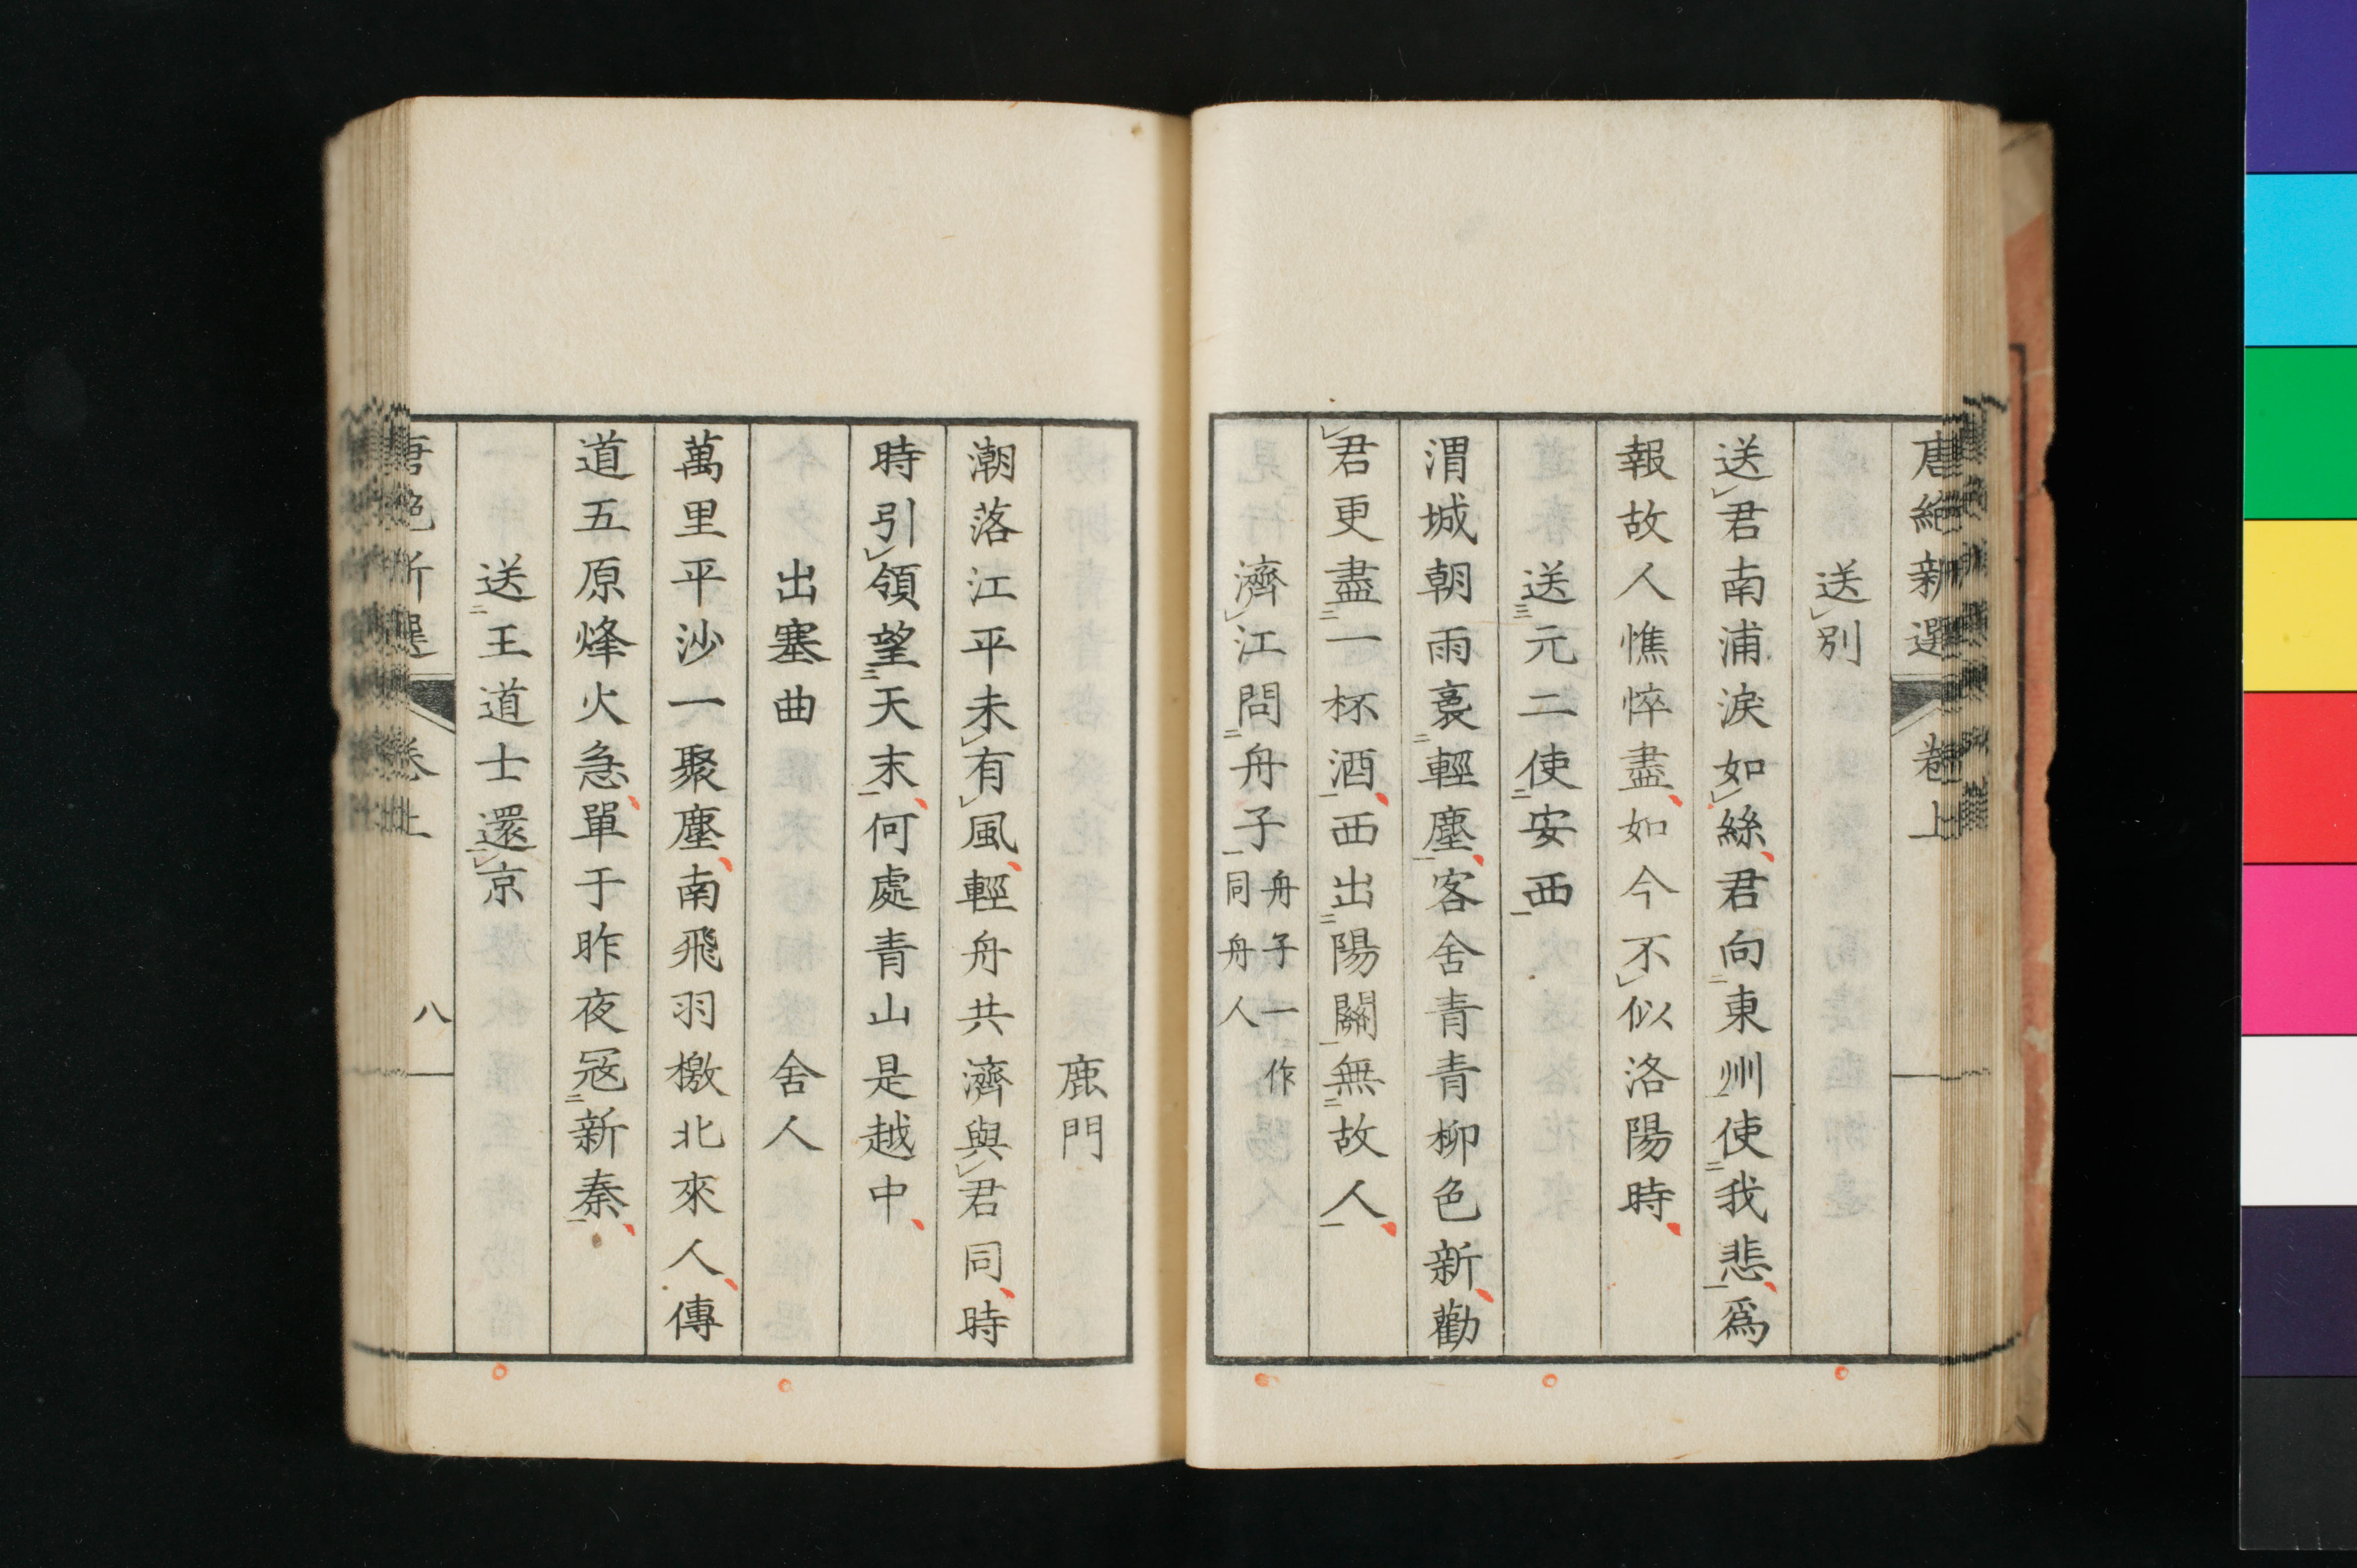 唐絶新選 卷上
送別
送君南浦淚如絲君向東州使我悲爲
報故人憔悴盡如今不似洛陽時
送元二使安西
渭城朝雨裛輕塵客舍青青柳色新勸
君更盡一杯酒西出陽關無故人
濟江問舟子舟子一作同舟人
鹿門
潮落江平未有風輕舟共濟與君同時
時引領望天末何處青山是越中
出塞曲 舍人
萬里平沙一聚塵南飛羽檄北來人傳
道五原烽火急單于昨夜寇新秦
送王道士還京
唐絶新選 卷上 八